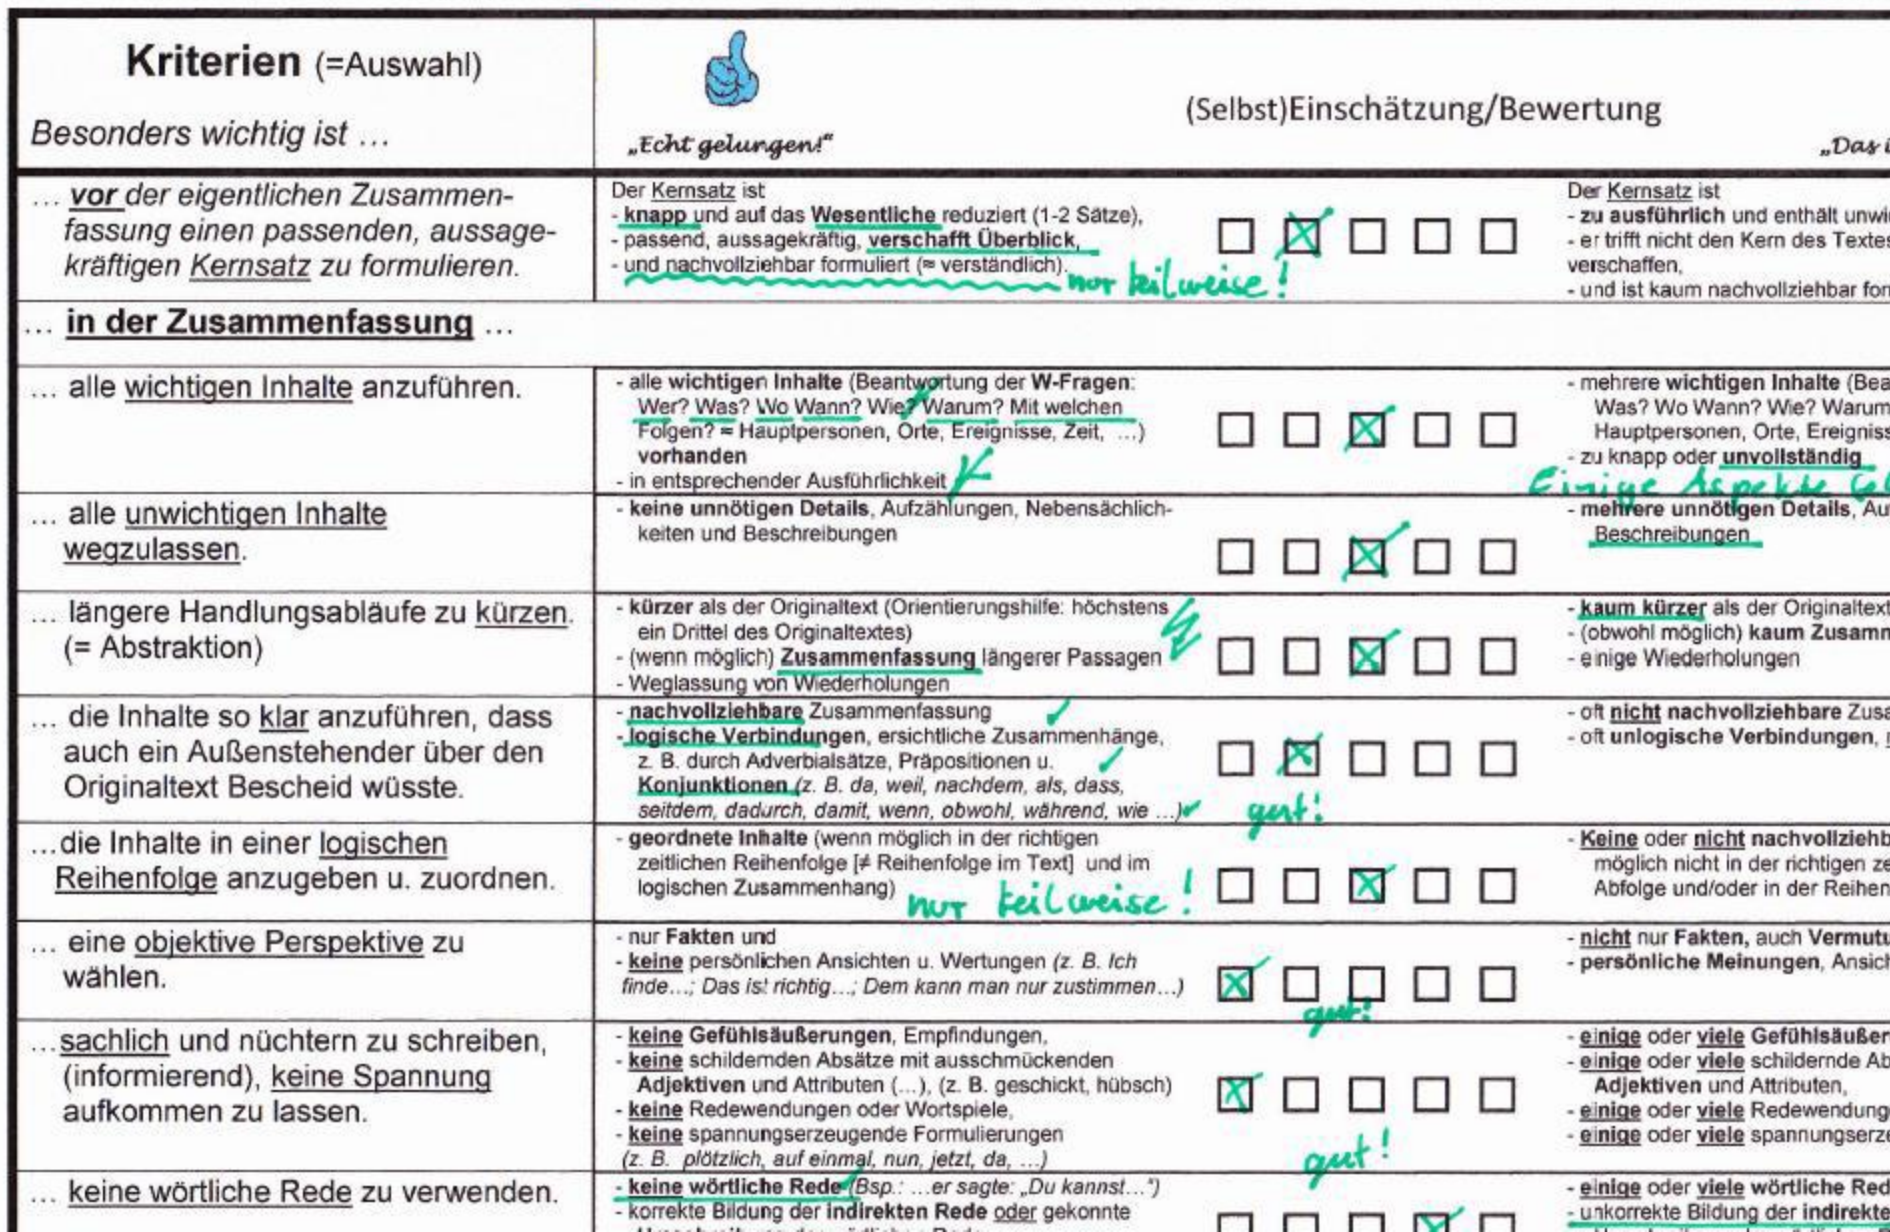 Kriterien (=Auswahl)
Besonders wichtig ist …
„Echt gelungen!“
(Selbst)Einschätzung/Bewertung
„Das
… vor der eigentlichen Zusammen-
fassung einen passenden, aussage-
kräftigen Kernsatz zu formulieren.
Der Kernsatz ist
- knapp und auf das Wesentliche reduziert (1-2 Sätze),
- passend, aussagekräftig, verschafft Überblick,
- und nachvollziehbar formuliert (≈ verständlich).
nur teilweise!
Der Kernsatz ist
- zu ausführlich und enthält
- er trifft nicht den Kern des Textes
verschaffen,
- und ist kaum nachvollziehbar
… in der Zusammenfassung …
… alle wichtigen Inhalte anzuführen.
- alle wichtigen Inhalte (Beantwortung der W-Fragen:
Wer? Was? Wo Wann? Wie? Warum? Mit welchen
Folgen? ≈ Hauptpersonen, Orte, Ereignisse, Zeit, …)
vorhanden
- in entsprechender Ausführlichkeit
- mehrere wichtigen Inhalte
Was? Wo Wann? Wie? Warum
Hauptpersonen, Orte,
- zu knapp oder unvollständig
Einige Aspekte
… alle unwichtigen Inhalte
wegzulassen.
- keine unnötigen Details, Aufzählungen, Nebensächlich-
keiten und Beschreibungen
- mehrere unnötigen Details,
Beschreibungen
… längere Handlungsabläufe zu kürzen.
(= Abstraktion)
- kürzer als der Originaltext (Orientierungshilfe: höchstens
ein Drittel des Originaltextes)
- (wenn möglich) Zusammenfassung längerer Passagen
- Weglassung von Wiederholungen
- kaum kürzer als der Originaltext
- (obwohl möglich) kaum
- einige Wiederholungen
… die Inhalte so klar anzuführen, dass
auch ein Außenstehender über den
Originaltext Bescheid wüsste.
- nachvollziehbare Zusammenfassung
- logische Verbindungen, ersichtliche Zusammenhänge,
z. B. durch Adverbialsätze, Präpositionen u.
Konjunktionen (z. B. da, weil, nachdem, als, dass,
seitdem, dadurch, damit, wenn, obwohl, während, wie …)
gut!
- oft nicht nachvollziehbare
- oft unlogische Verbindungen,
…die Inhalte in einer logischen
Reihenfolge anzugeben u. zuordnen.
- geordnete Inhalte (wenn möglich in der richtigen
zeitlichen Reihenfolge [≠ Reihenfolge im Text] und im
logischen Zusammenhang)
nur teilweise!
- Keine oder nicht
möglich nicht in der richtigen
Abfolge und/oder in der
… eine objektive Perspektive zu
wählen.
- nur Fakten und
- keine persönlichen Ansichten u. Wertungen (z. B. Ich
finde…; Das ist richtig…; Dem kann man nur zustimmen…)
gut!
- nicht nur Fakten, auch
- persönliche Meinungen,
…sachlich und nüchtern zu schreiben,
(informierend), keine Spannung
aufkommen zu lassen.
- keine Gefühlsäußerungen, Empfindungen,
- keine schildernden Absätze mit ausschmückenden
Adjektiven und Attributen (…), (z. B. geschickt, hübsch)
- keine Redewendungen oder Wortspiele,
- keine spannungserzeugende Formulierungen
(z. B. plötzlich, auf einmal, nun, jetzt, da, …)
gut!
- einige oder viele
- einige oder viele schildernde
Adjektiven und Attributen,
- einige oder viele
- einige oder viele
… keine wörtliche Rede zu verwenden.
- keine wörtliche Rede (Bsp.: …er sagte: „Du kannst…“)
- korrekte Bildung der indirekten Rede oder gekonnte
- einige oder viele wörtliche
- unkorrekte Bildung der indirekte